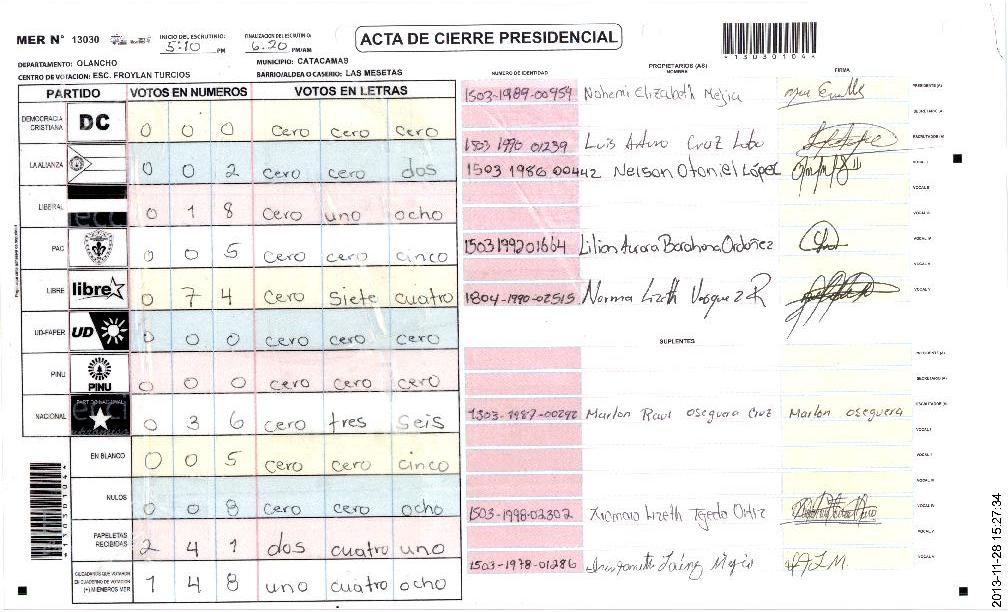 MER N° 13030
INICIO DEL ESCRUTINIO: 5:10 PM
FINALIZACION DEL ESCRUTINIO: 6:20 PM/AM
ACTA DE CIERRE PRESIDENCIAL
*13030104*
DEPARTAMENTO: OLANCHO
MUNICIPIO: CATACAMAS
CENTRO DE VOTACION: ESC. FROYLAN TURCIOS
BARRIO/ALDEA O CASERIO: LAS MESETAS
PARTIDO VOTOS EN NUMEROS VOTOS EN LETRAS
DEMOCRACIA CRISTIANA DC 0 0 0 cero cero cero
LA ALIANZA 0 0 2 cero cero dos
LIBERAL 0 1 8 cero uno ocho
PAC 0 0 5 cero cero cinco
LIBRE libre 0 7 4 cero siete cuatro
UD-FAPER UD 0 0 0 cero cero cero
PINU PINU 0 0 0 cero cero cero
NACIONAL 0 3 6 cero tres seis
EN BLANCO 0 0 5 cero cero cinco
NULOS 0 0 8 cero cero ocho
PAPELETAS RECIBIDAS 2 4 1 dos cuatro uno
CIUDADANOS QUE VOTARON EN CUADERNO DE VOTACION (+) MIEMBROS MER 1 4 8 uno cuatro ocho
*13030104*
PROPIETARIOS (AS)
NUMERO DE IDENTIDAD NOMBRE FIRMA
1503-1989-00954 Nohemi Elizabeth Mejia PRESIDENTE (A)
SECRETARIO (A)
1503 1990 01239 Luis Arturo Cruz Lobo ESCRUTADOR (A)
1503 1986 00442 Nelson Otoniel López VOCAL I
VOCAL II
1503199201664 Lilian Aurora Barahona Ordoñez VOCAL III
VOCAL IV
1804-1990-02515 Norma Lizeth Vasquez R VOCAL V
SUPLENTES
PRESIDENTE (A)
SECRETARIO (A)
1503-1987-00292 Marlon Raul oseguera Cruz Marlon oseguera ESCRUTADOR (A)
VOCAL I
VOCAL II
VOCAL III
1503-1998-02302 Lizeth Tejeda Ortiz VOCAL IV
VOCAL V
1503-1978-01286
2013-11-28 15:27:34